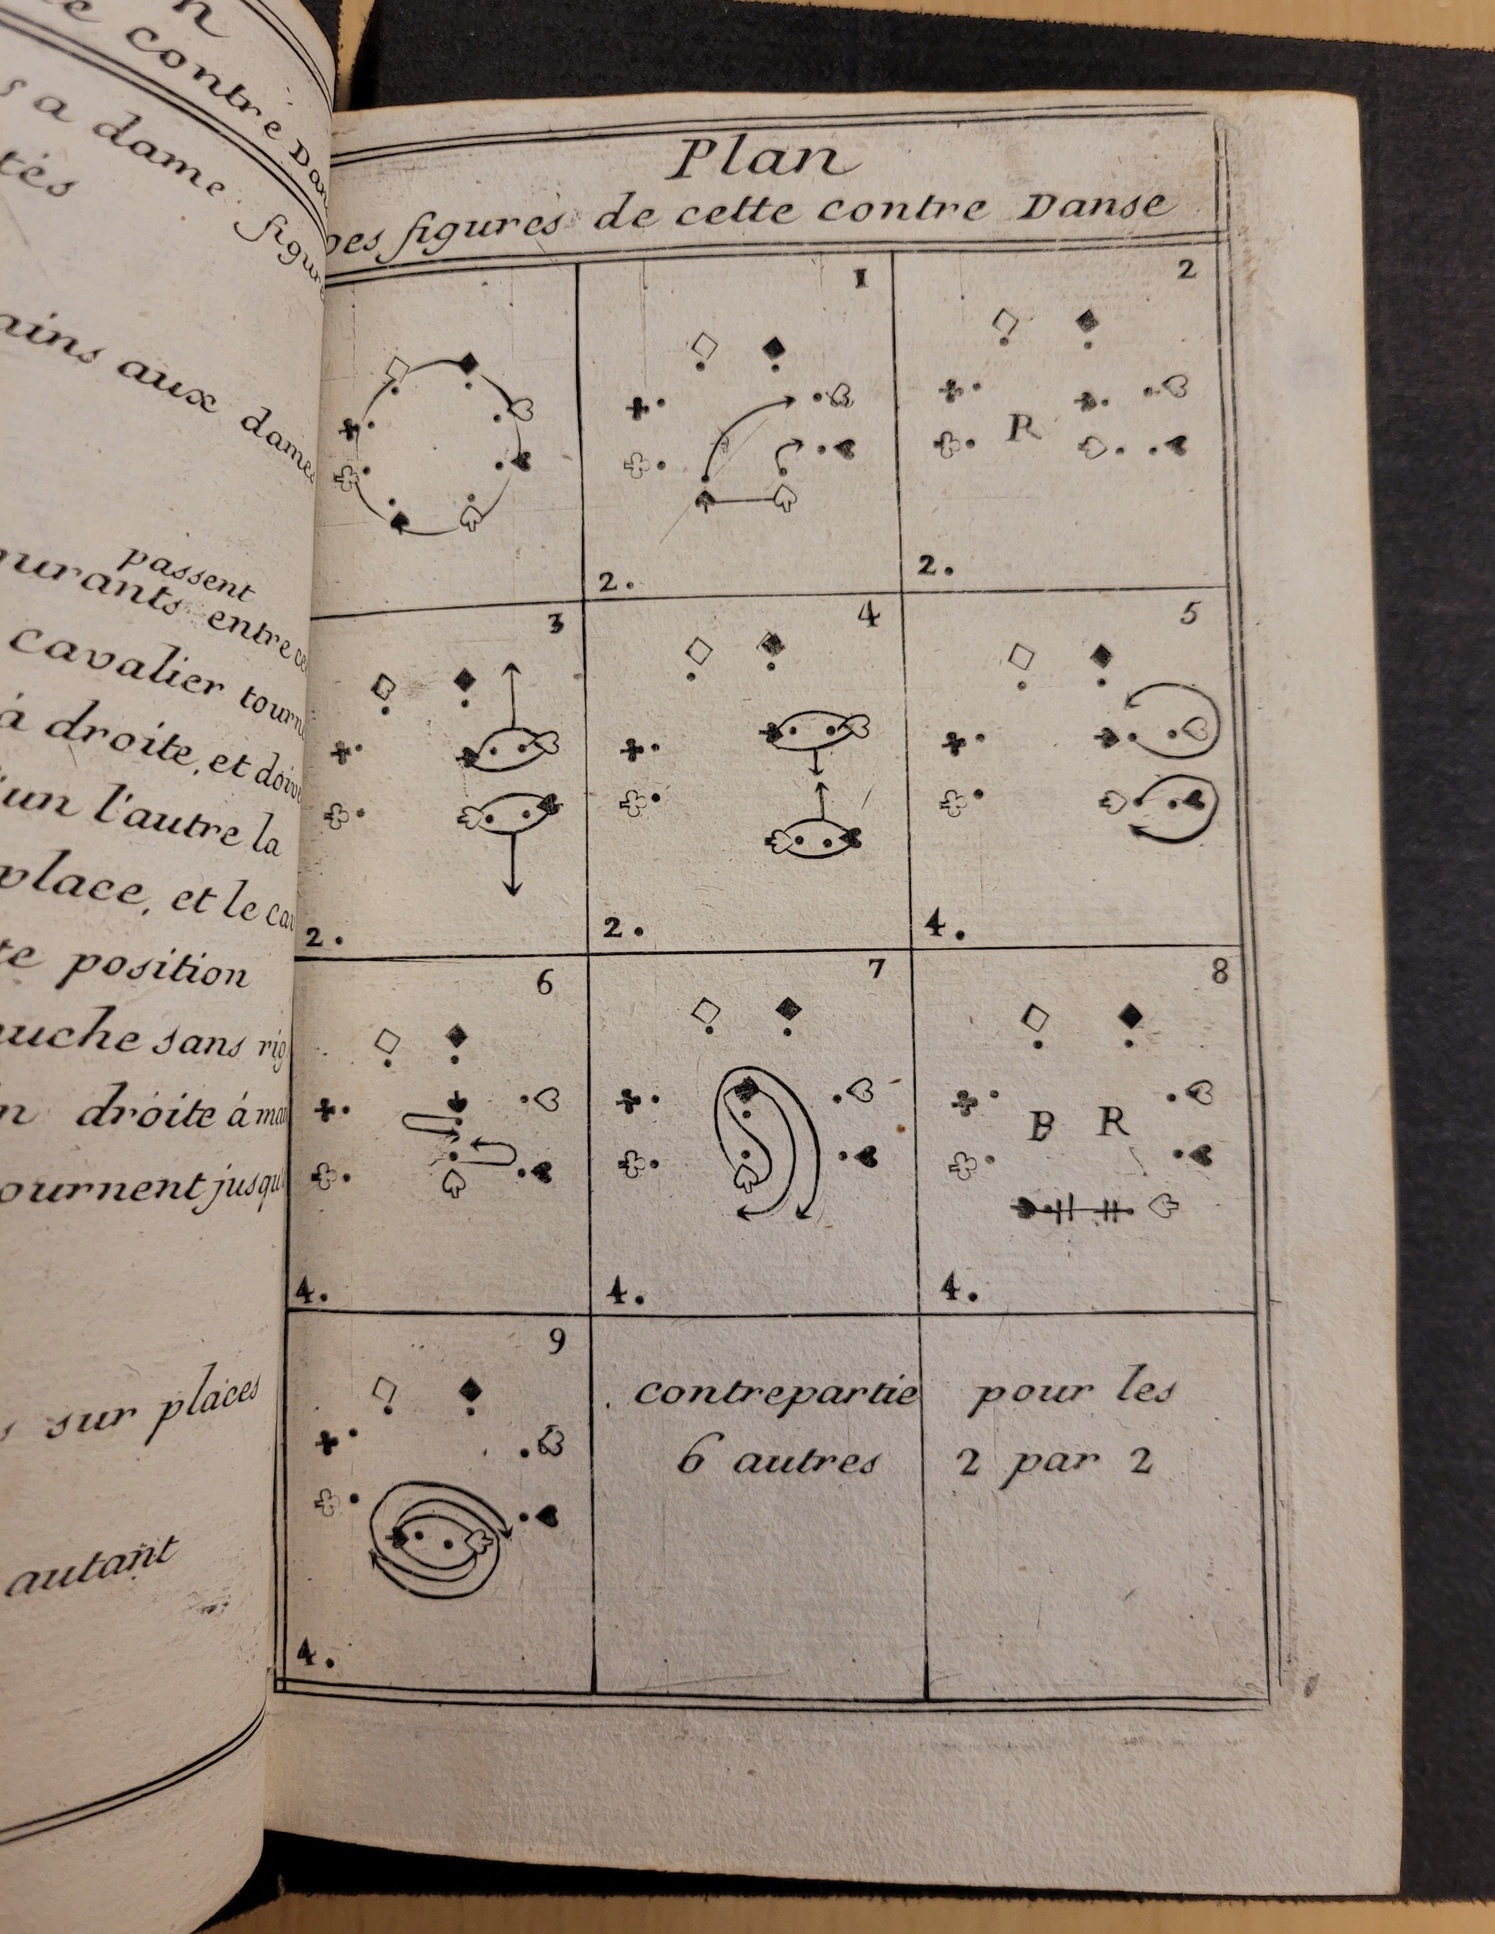 contre
s a dame figur
tés
ains aux dames
passent
entre
cavalier
à droite, et
l'un l'autre la
place, et le
te position
sans
droite à
sur places
autant
Plan
Des figures de cette contre Danse
1
2.
2
2.
3
2.
4
2.
5
4.
6
4.
7
4.
8
B R
4.
R
9
4.
contrepartie pour les
6 autres 2 par 2